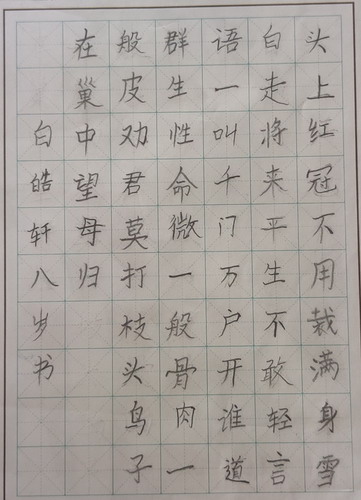 头上红冠不用裁满身雪
白走将来平生不敢轻言
语一叫千门万户开谁道
群生性命微一般骨肉一
般皮劝君莫打枝头鸟子
在巢中望母归
白皓轩八岁书